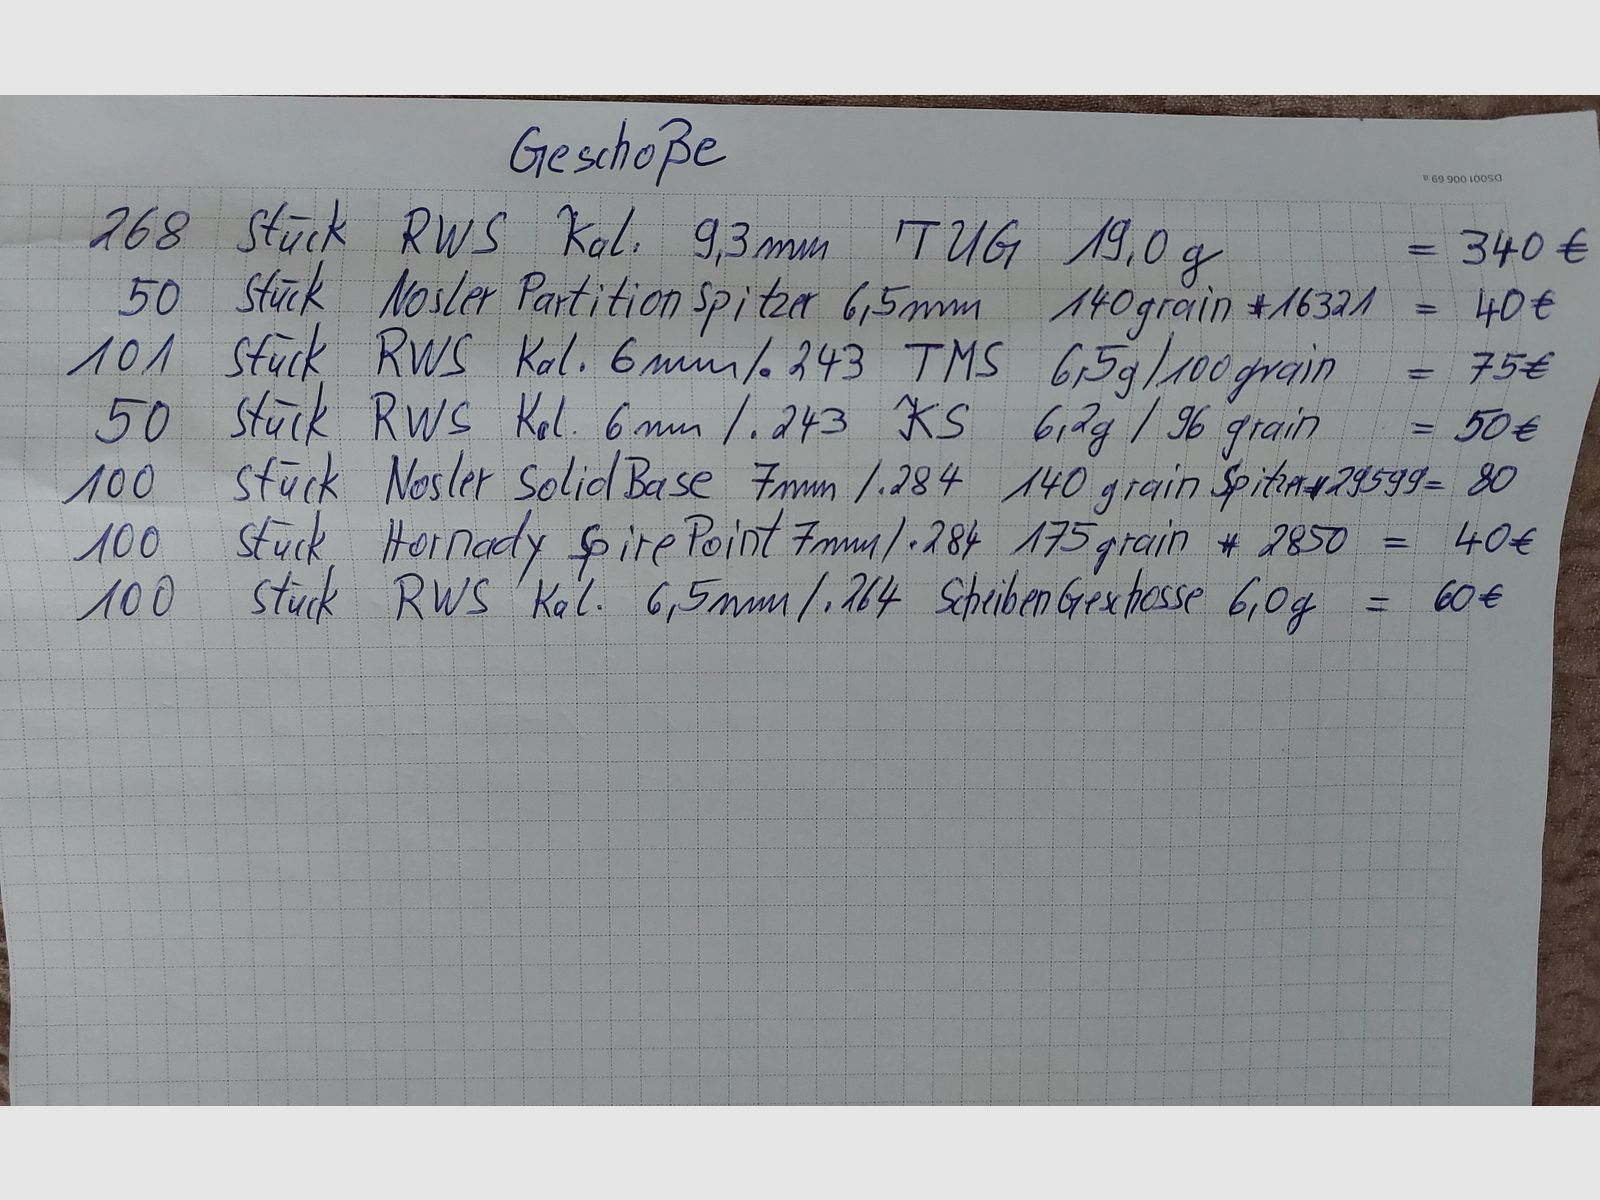 Geschoße
DS001 006 69 a
268 Stück RWS Kal. 9,3mm TUG 19,0g = 340€
50 Stück Nosler Partition Spitzer 6,5mm 140grain #16321 = 40€
101 Stück RWS Kal. 6mm/.243 TMS 6,5g/100grain = 75€
50 Stück RWS Kal. 6mm/.243 KS 6,2g / 96 grain = 50€
100 Stück Nosler Solid Base 7mm/.284 140 grain Spitzer #29599 = 80
100 Stück Hornady Spire Point 7mm/.284 175grain # 2850 = 40€
100 Stück RWS Kal. 6,5mm/.264 Scheiben Geschosse 6,0g = 60€